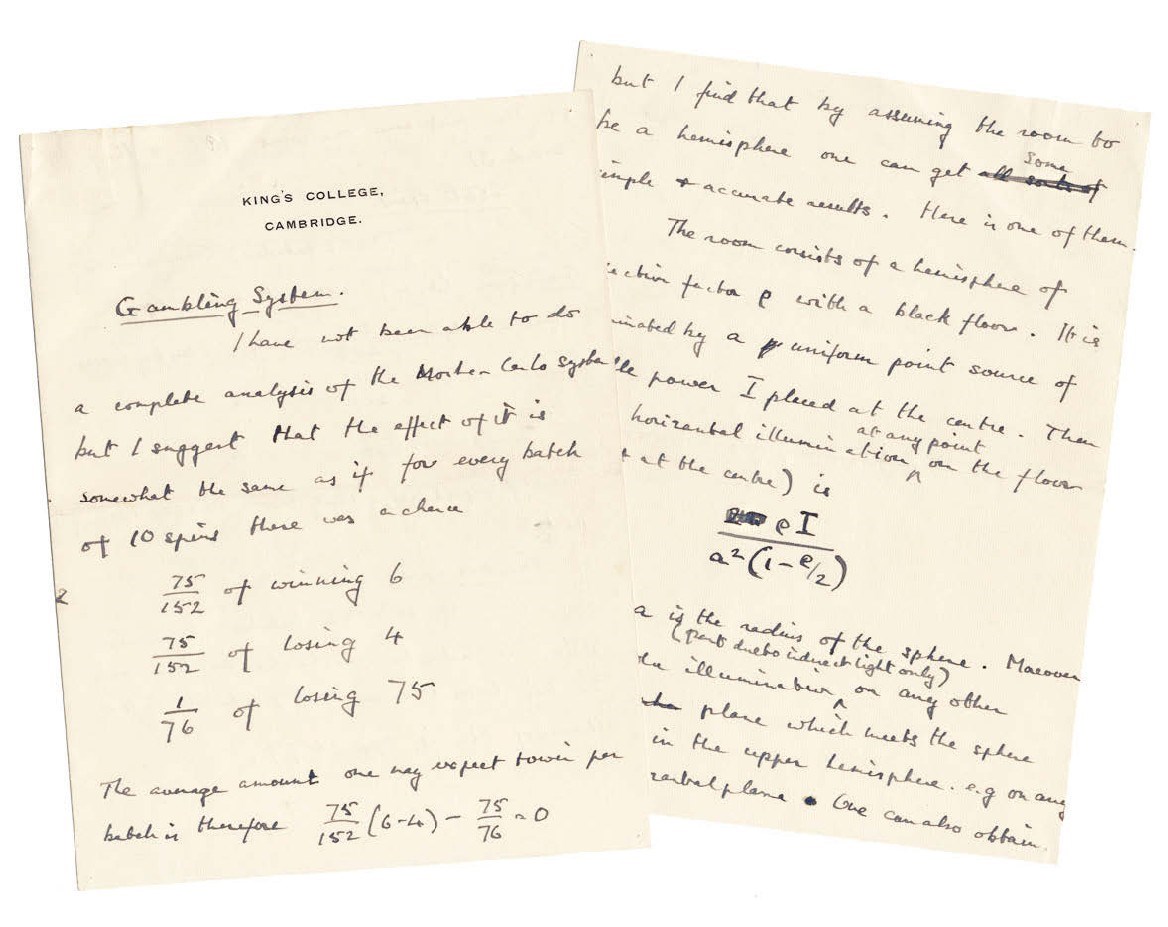 KING'S COLLEGE,
CAMBRIDGE.
Gambling System.
I have not been able to do
a complete analysis of the Monte Carlo system
but I suggest that the effect of it is
somewhat the same as if for every batch
of 10 spins there was a chance
75/152 of winning 6
75/152 of losing 4
1/76 of losing 75
The average amount one may expect to win per
batch is therefore 75/152 (6-4) - 75/76 = 0
but I find that by assuming the room to
be a hemisphere one can get all sorts of some
simple & accurate results. Here is one of them.
The room consists of a hemisphere of
ection factor ρ with a black floor. It is
uminated by a uniform point source of
le power I placed at the centre. Then
horizontal illumination at any point on the floor
at the centre) is
ρI / a²(1-ρ/2)
a is the radius of the sphere. Moreover
(part due to indirect light only)
the illumination on any other
plane which meets the sphere
in the upper hemisphere. e.g on any
zontal plane. One can also obtain